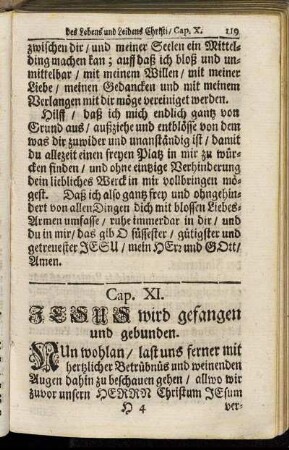 des Lebens und Leidens Christi / Cap. X. 119
zwischen dir / und meiner Seelen ein Mittel-
ding machen kan; auff daß ich bloß und un-
mittelbar / mit meinem Willen / mit meiner
Liebe / meinen Gedancken und mit meinem
Verlangen mit dir möge vereiniget werden.
Hilff / daß ich mich endlich gantz von
Grund aus / außziehe und entblösse von dem
was dir zuwider und unanständig ist / damit
du allezeit einen freyen Platz in mir zu wür-
cken finden / und ohne eintzige Verhinderung
dein liebliches Werck in mir vollbringen mö-
gest. Daß ich also gantz frey und ohngehin-
dert von allen Dingen dich mit blossen Liebes-
Armen umfasse / ruhe immerdar in dir / und
du in mir / das gib O süssester / gütigster und
getreuester JESU / mein HErr und GOtt /
Amen.
Cap. XI.
JESUS wird gefangen
und gebunden.
Nun wohlan / last uns ferner mit
hertzlicher Betrübnüs und weinenden
Augen dahin zu beschauen gehen / allwo wir
zuvor unsern HERRN Christum JEsum
H 4 ver-